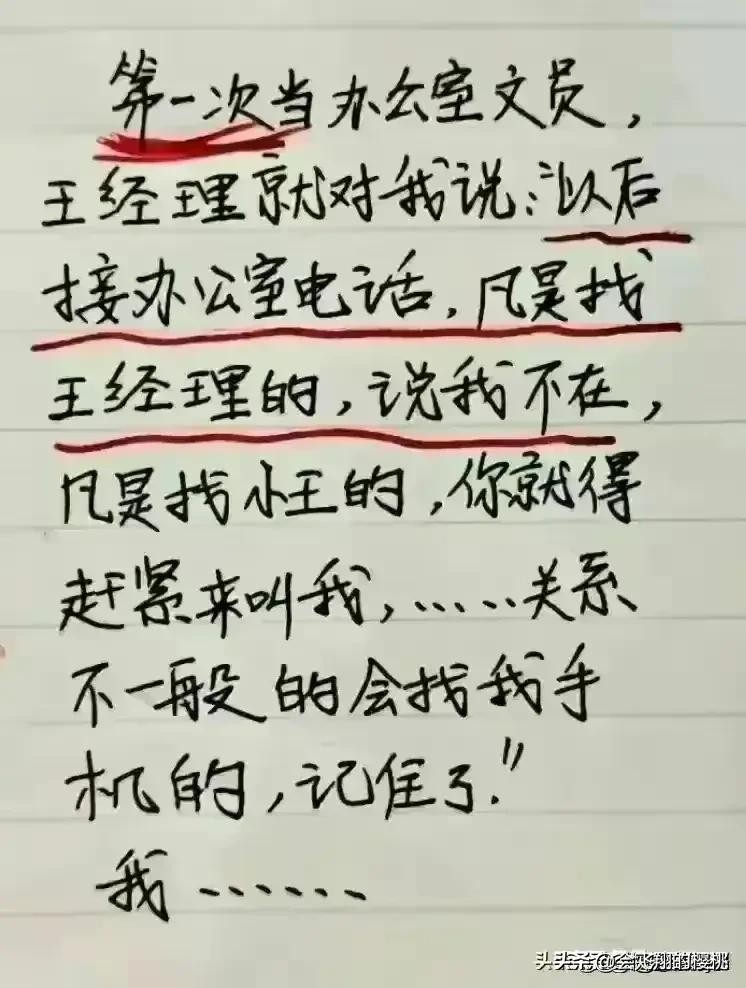 第一次当办公室文员，
王经理就对我说：“以后
接办公室电话，凡是找
王经理的，说我不在，
凡是找小王的，你就得
赶紧来叫我，……关系
不一般的会找我手
机的，记住了．”
我……
头条